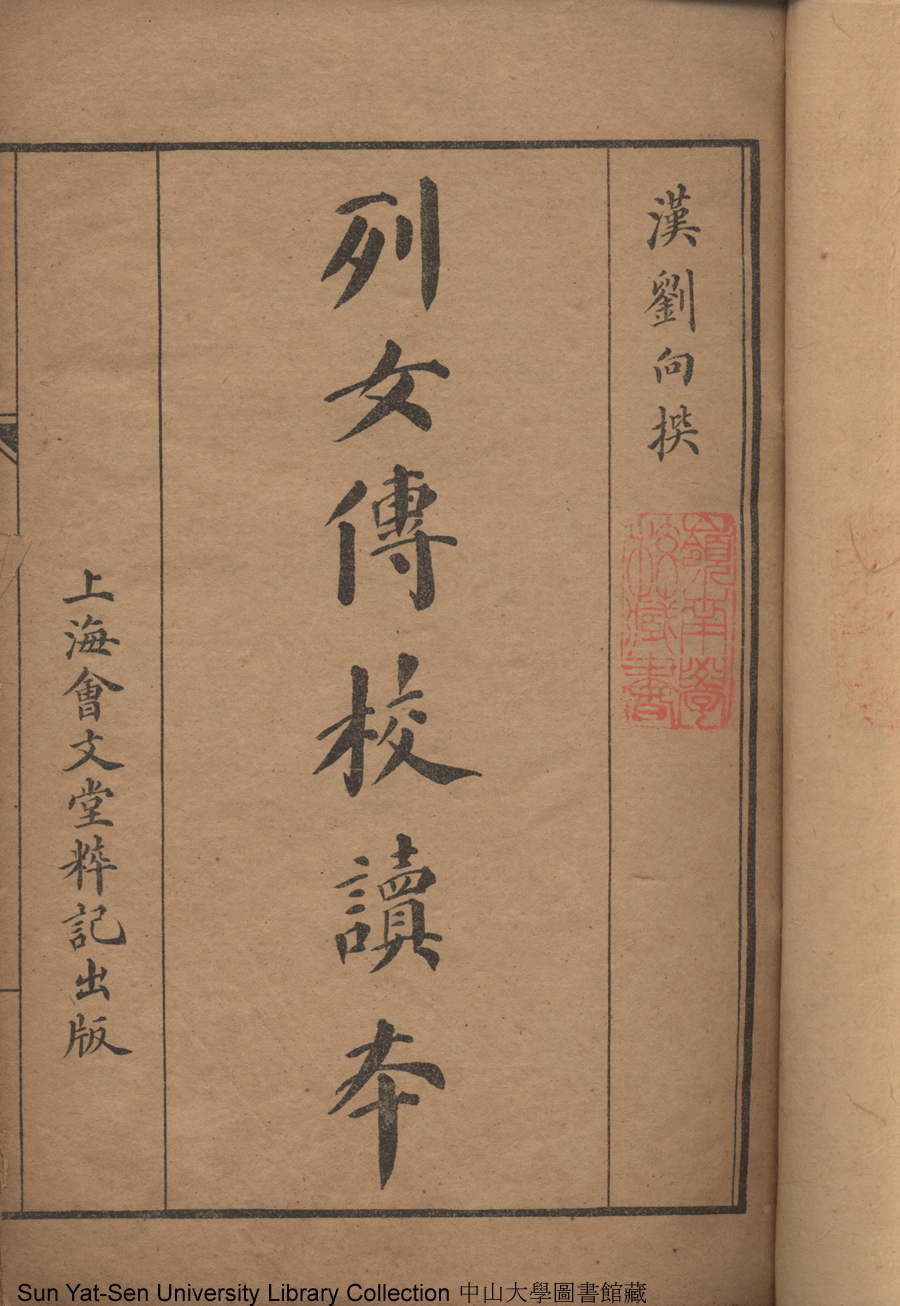 漢劉向撰
嶺南學
校藏書
列女傳校讀本
上海會文堂粹記出版
Sun Yat-Sen University Library Collection 中山大學圖書館藏